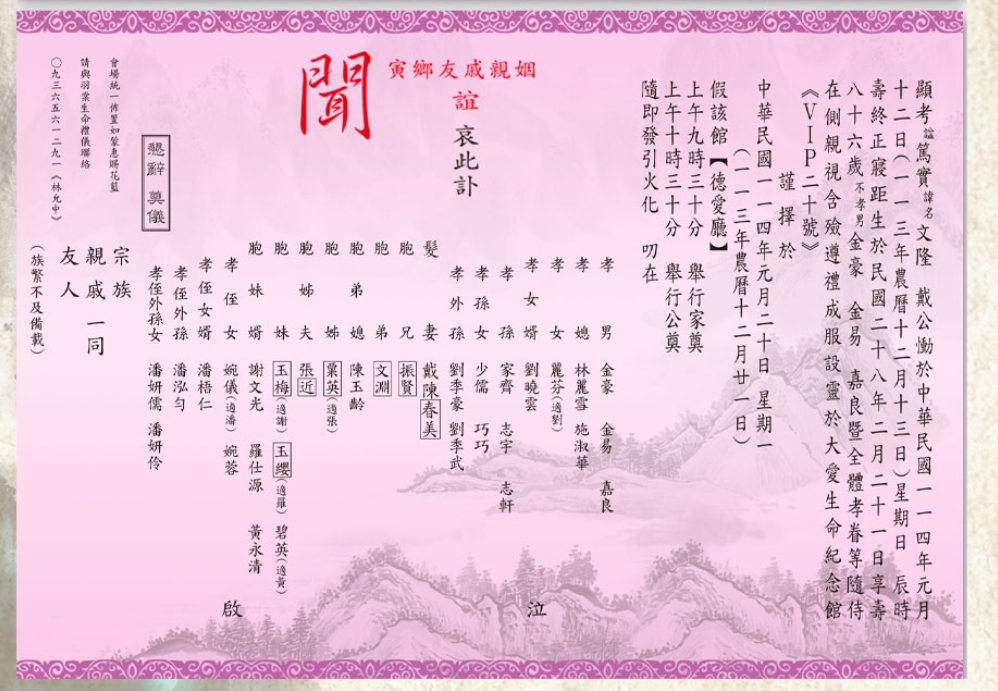 顯考諡篤實諱名文隆 戴公慟於中華民國一一四年元月
十二日(一一三年農曆十二月十三日)星期日 辰時
壽終正寢距生於民國二十八年二月二十一日享壽
八十六歲不孝男金豪 金易 嘉良暨全體孝眷等隨侍
在側親視含殮遵禮成服設靈於大愛生命紀念館
《VIP二十號》
謹擇於
中華民國一一四年元月二十日 星期一
(一一三年農曆十二月廿一日)
假該館【德愛廳】
上午九時三十分 舉行家奠
上午十時三十分 舉行公奠
隨即發引火化 叨在
姻親戚友鄉寅
誼
哀此訃
聞
孝男 金豪 金易 嘉良
孝媳 林麗雪 施淑華
孝女 麗芬(適劉)
孝女婿 劉曉雲
孝孫 家齊 志宇 志軒
孝孫女 少儒 巧巧
孝外孫 劉季豪 劉季武
髮妻 戴陳春美
胞兄 振賢
胞弟 文淵
胞弟媳 陳玉齡
胞姊 粟英(適張)
胞姊夫 張近
胞妹 玉梅(適謝) 玉纓(適羅) 碧英(適黃)
胞妹婿 謝文光 羅仕源 黃永清
孝侄女 婉儀(適潘) 婉蓉
孝侄女婿 潘梧仁
孝侄外孫 潘泓勻
孝侄外孫女 潘妍儒 潘妍伶
泣
啟
宗族
親戚一同
友人
(族繁不及備載)
懇辭 奠儀
會場統一佈置如蒙惠賜花籃
請與羽棠生命禮儀聯絡
○九三六五六一二九一《林允中》